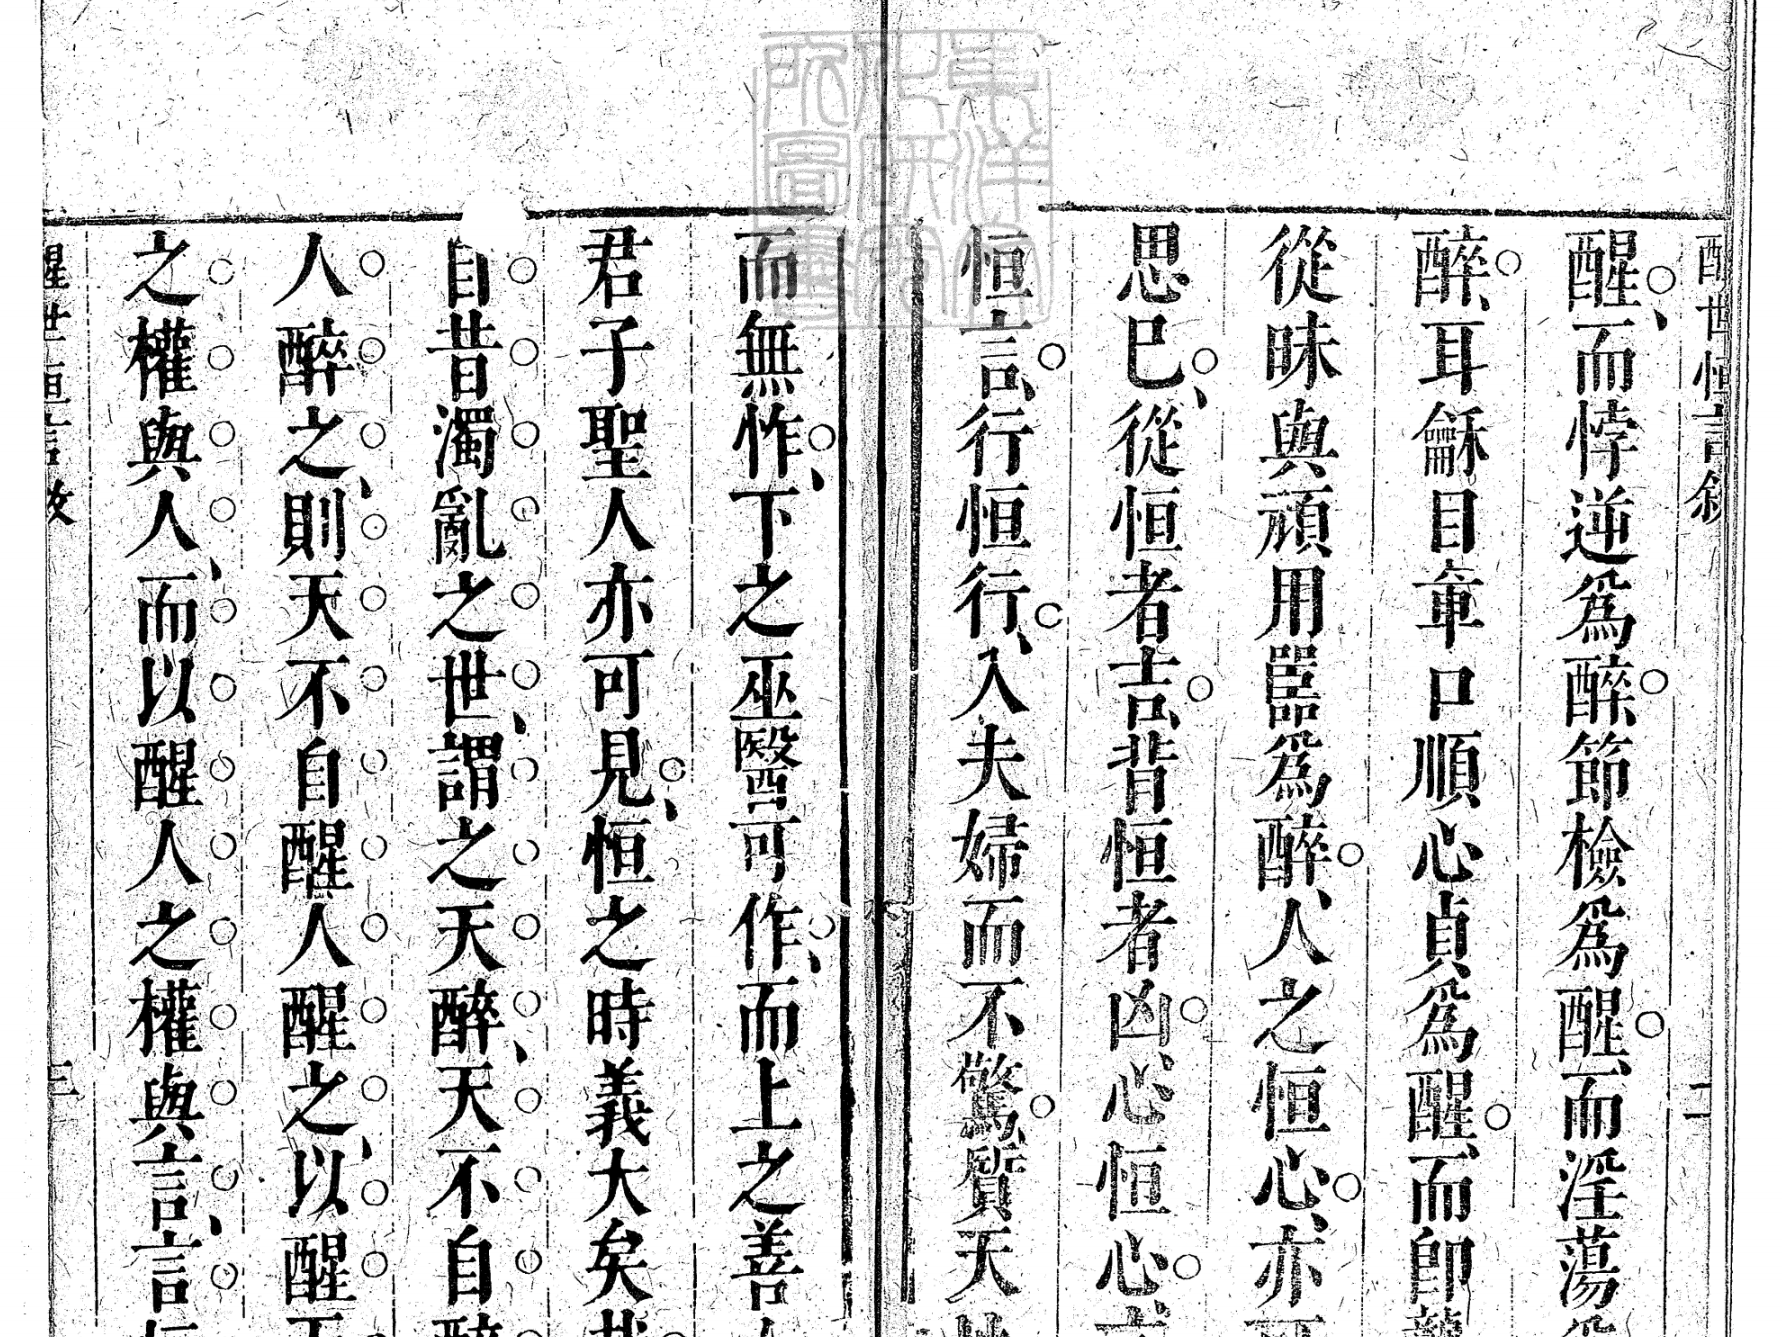 醒世恒言叙
醒、而悖逆爲醉、節檢爲醒、而淫蕩爲
醉、耳龢目章口順心貞爲醒、而卽聾
從昧與頑用嚚爲醉、人之恒心、亦可
思巳、從恒者吉、背恒者凶、心恒心言
恒言、行恒行、入夫婦而不驚、質天地
而無怍、下之巫毉可作、而上之善人
君子聖人亦可見、恒之時義大矣哉
自昔濁亂之世、謂之天醉、天不自醉
人醉之、則天不自醒人醒之、以醒天
之權與人、而以醒人之權與言、言恒
醒世恒言敘
三